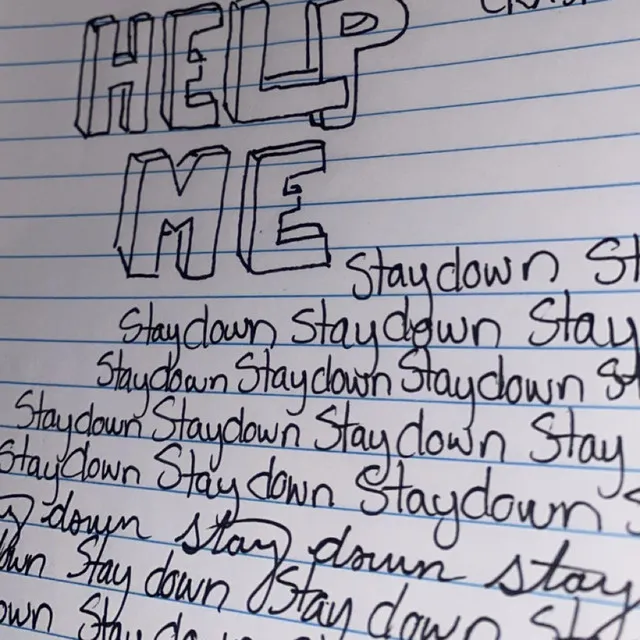 HELP
ME
Stay down St
Stay down Stay down Stay
Stay down Stay down Stay down St
Stay down Stay down Stay down Stay
Stay down Stay down Stay down S
down stay down stay
Stay down Stay down St
own Stay